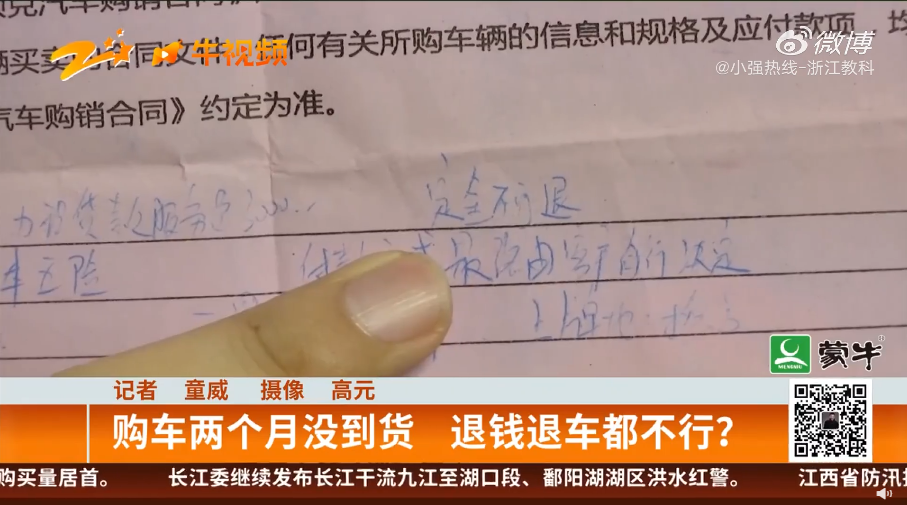 汽车购销合同》
辆买卖的合同文件,任何有关所购车辆的信息和规格及应付款项,均
牛视频
微博
@小强热线-浙江教科
汽车购销合同》约定为准。
定金不退
贷款服务
车五险
最终由客户自行决定
上牌地
蒙牛
MENGNIU
记者 童威 摄像 高元
购车两个月没到货 退钱退车都不行?
购买量居首。 长江委继续发布长江干流九江至湖口段、鄱阳湖湖区洪水红警。 江西省防汛